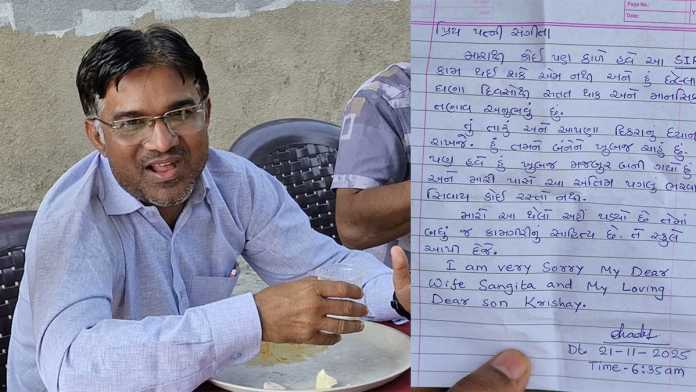 Page No.:
Date:
પ્રિય પત્ની સંગીતા
મારાથી કોઈ પણ કાળે હવે આ SIR
કામ થઈ શકે એમ નથી અને હું છેલ્લા
ઘણા દિવસોથી સતત થાક અને માનસિક
તણાવ અનુભવું છું.
તું તારું અને આપણા દિકરાનું ધ્યાન
રાખજે. હું તમને બંનેને ખુબજ ચાહું છું.
પણ હવે હું ખુબજ મજબુર બની ગયો છું
અને મારી પાસે આ અંતિમ પગલું ભરવા
સિવાય કોઈ રસ્તો નથી.
મારો આ થેલો અહીં પડ્યો છે તેમાં
બધું જ કામગીરીનું સાહિત્ય છે. તે સ્કુલે
આપી દેજે.
I am very Sorry My Dear
Wife Sangita and My Loving
Dear Son Krishay.
Dt. 21-11-2025
Time- 6:35am